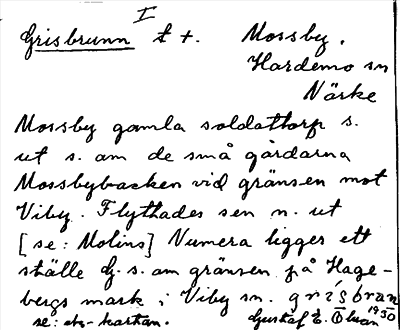 I
Grisbrunn t +. Mossby.
Hardemo sn
Närke
Mossby gamla soldattorp s.
ut s. om de små gårdarna
Mossbybacken vid gränsen mot
Viby. Flyttades sen n. ut
[se: Molins] Numera ligger ett
ställe G. s. om gränsen på Hage-
bergs mark i Viby sn. grisbran
se: ek-kartan. Gustaf E. Olsson 1930